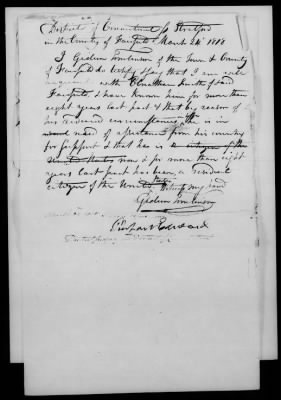 District of Connecticut ss Stratford
in the County of Fairfield March 24th 1818
I Gideon Tomlinson of the Town & County
of Fairfield do certify & say that I am well
acquainted with Elnathan Smith of said
Fairfield & have known him for more than
eight years last past & that by reason of
his reduced circumstances he is in
need of assistance from his country
for support & that he is a citizen of the
United States now & for more than eight
years last past has been, a resident
citizen of the United States Witness my hand
Gideon Tomlinson
Pierpont Edwards
District Judge